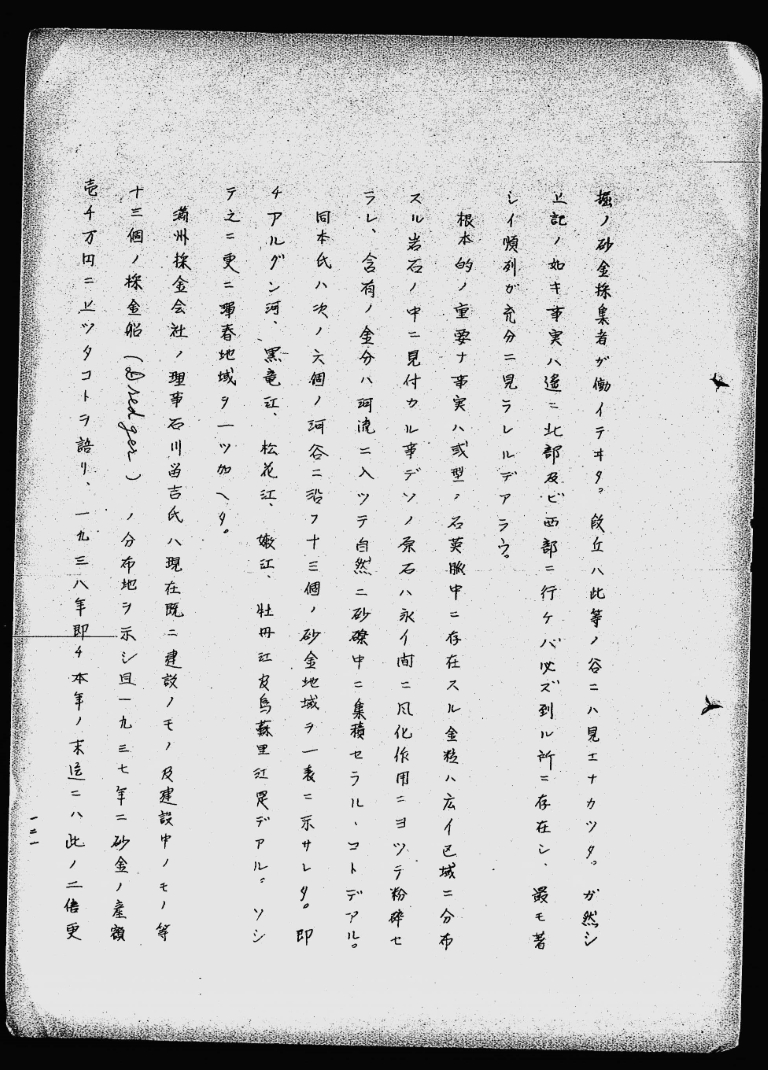 掘ノ砂金採集者ガ働イテヰタ。段丘ハ此等ノ谷ニハ見エナカツタ。ガ然シ
上記ノ如キ事実ハ遙ニ北部及ビ西部ニ行ケバ必ズ到ル所ニ存在シ、最モ著
シイ順列ガ充分ニ見ラレルデアラウ。
根本的ノ重要ナ事実ハ或型ノ石英脈中ニ存在スル金粒ハ広イ区域ニ分布
スル岩石ノ中ニ見付カル事デソノ原石ハ永イ間ニ風化作用ニヨツテ粉砕セ
ラレ、含有ノ金分ハ河流ニ入ツテ自然ニ砂礫中ニ集積セラルヽコトデアル。
岡本氏ハ次ノ六個ノ河谷ニ沿フ十三個ノ砂金地域ヲ一表ニ示サレタ。即
チアルグン河、黒竜江、松花江、嫩江、牡丹江及烏蘇里江是デアル。ソシ
テ之ニ更ニ琿春地域ヲ一ツ加ヘタ。
満州採金会社ノ理事石川留吉氏ハ現在既ニ建設ノモノ及建設中ノモノ等
十三個ノ採金船(Dredger)ノ分布地ヲ示シ且一九三七年ニ砂金ノ産額
壱千万円ニ上ツタコトヲ語リ、一九三八年即チ本年ノ末迄ニハ此ノ二倍更